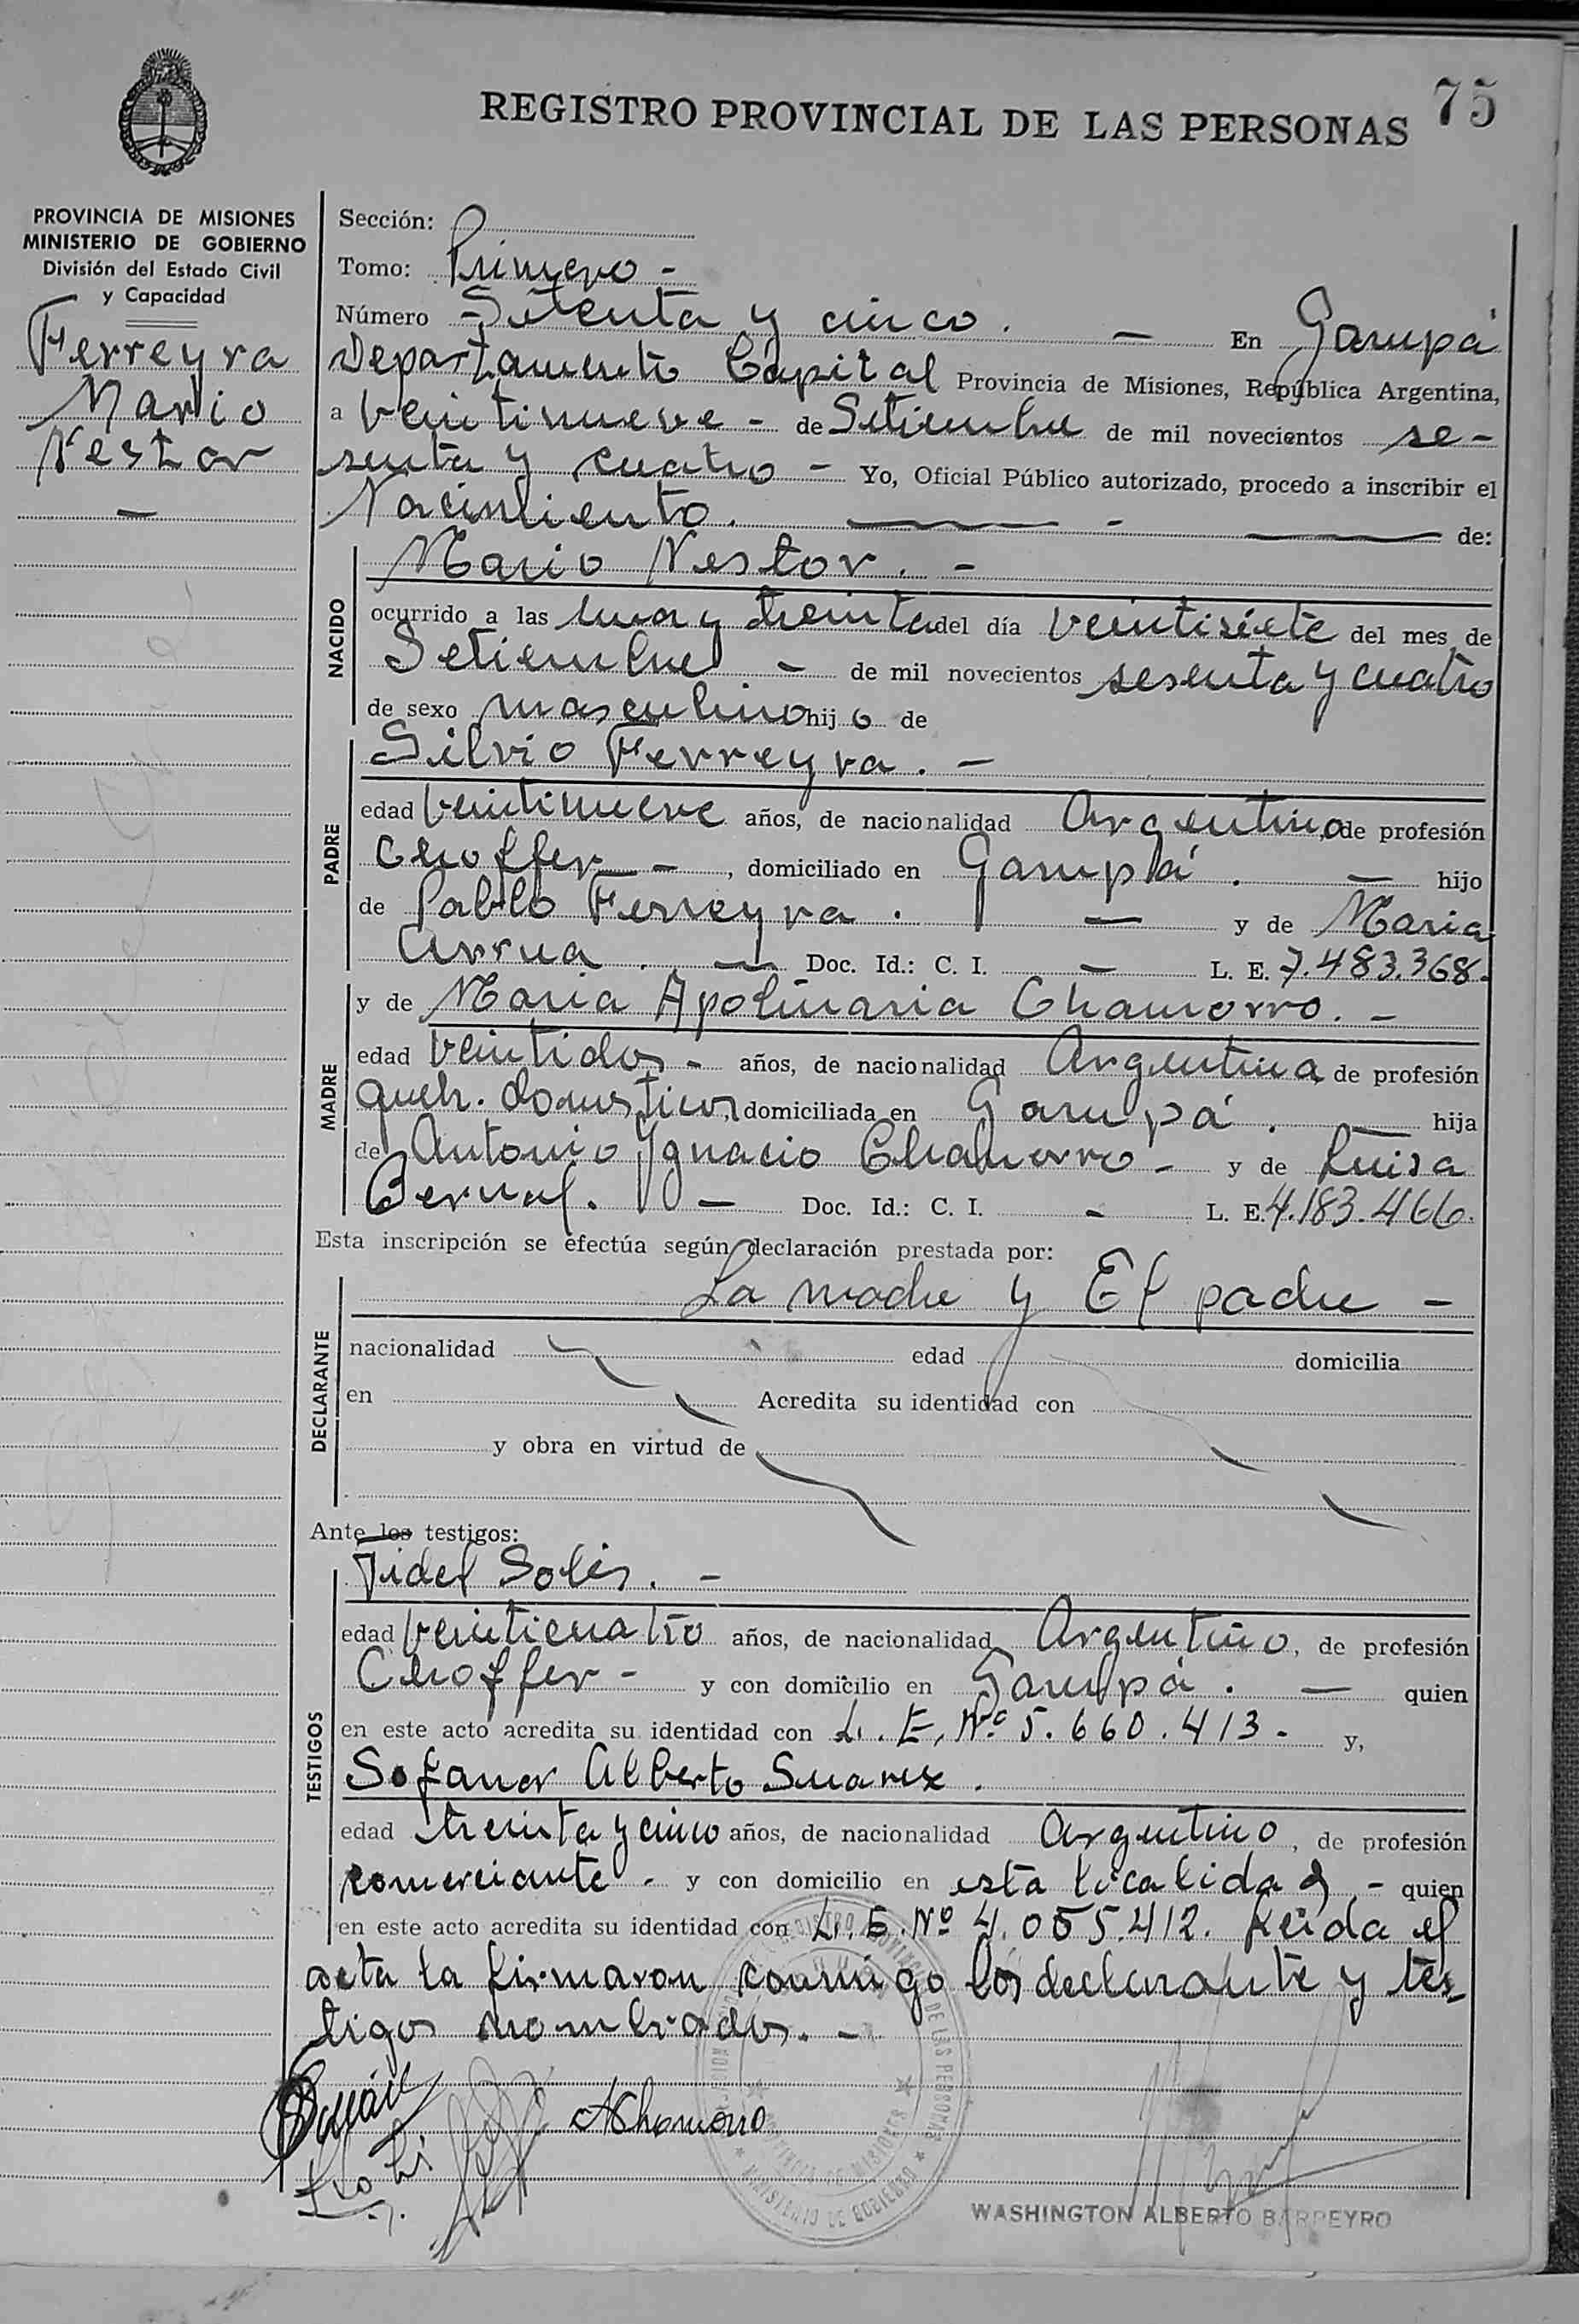 REGISTRO PROVINCIAL DE LAS PERSONAS 75
PROVINCIA DE MISIONES
MINISTERIO DE GOBIERNO
División del Estado Civil
y Capacidad
Ferreyra
Mario
Nestor
—
Sección:
Tomo: Primero -
Número - Setenta y cinco. — En Garupá
Departamento Capital Provincia de Misiones, República Argentina,
a veintinueve - de Setiembre de mil novecientos se-
senta y cuatro - Yo, Oficial Público autorizado, procedo a inscribir el
Nacimiento. — - — de:
NACIDO
Mario Nestor. -
ocurrido a las una y treinta del día veintisiete del mes de
Setiembre - de mil novecientos sesenta y cuatro
de sexo masculino hij o de
PADRE
Silvio Ferreyra. -
edad veintinueve años, de nacionalidad Argentino, de profesión
Choffer - , domiciliado en Garupá. — hijo
de Pablo Ferreyra. — y de Maria
Arrua. — Doc. Id.: C. I. — L. E. 7.483.368.
MADRE
y de Maria Apolinaria Chamorro. -
edad veintidos - años, de nacionalidad Argentina de profesión
queh. domesticos, domiciliada en Garupá. — hija
de Antonio Ygnacio Chamorro - y de Luisa
Bernal. — Doc. Id.: C. I. - L. E. 4.183.466.
Esta inscripción se efectúa según declaración prestada por:
DECLARANTE
La madre y El padre -
nacionalidad edad domicilia
en Acredita su identidad con
y obra en virtud de
Ante los testigos:
TESTIGOS
Fidel Solis. -
edad veinticuatro años, de nacionalidad Argentino, de profesión
Choffer - y con domicilio en Garupá. — quien
en este acto acredita su identidad con L. E. Nº 5.660.413 - y,
Sofanor Alberto Suarez.
edad treinta y cinco años, de nacionalidad Argentino, de profesión
comerciante - y con domicilio en esta localidad, - quien
en este acto acredita su identidad con L. E. Nº 4.055.412. Leida el
acta la firmaron conmigo los declarante y tes-
tigos nombrados. -
AChamorro
WASHINGTON ALBERTO BARREYRO